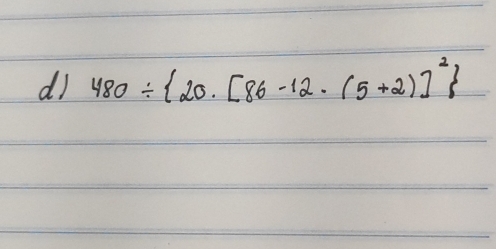 d) 480 ÷ {20 . [86 - 12 . (5 + 2)]²}